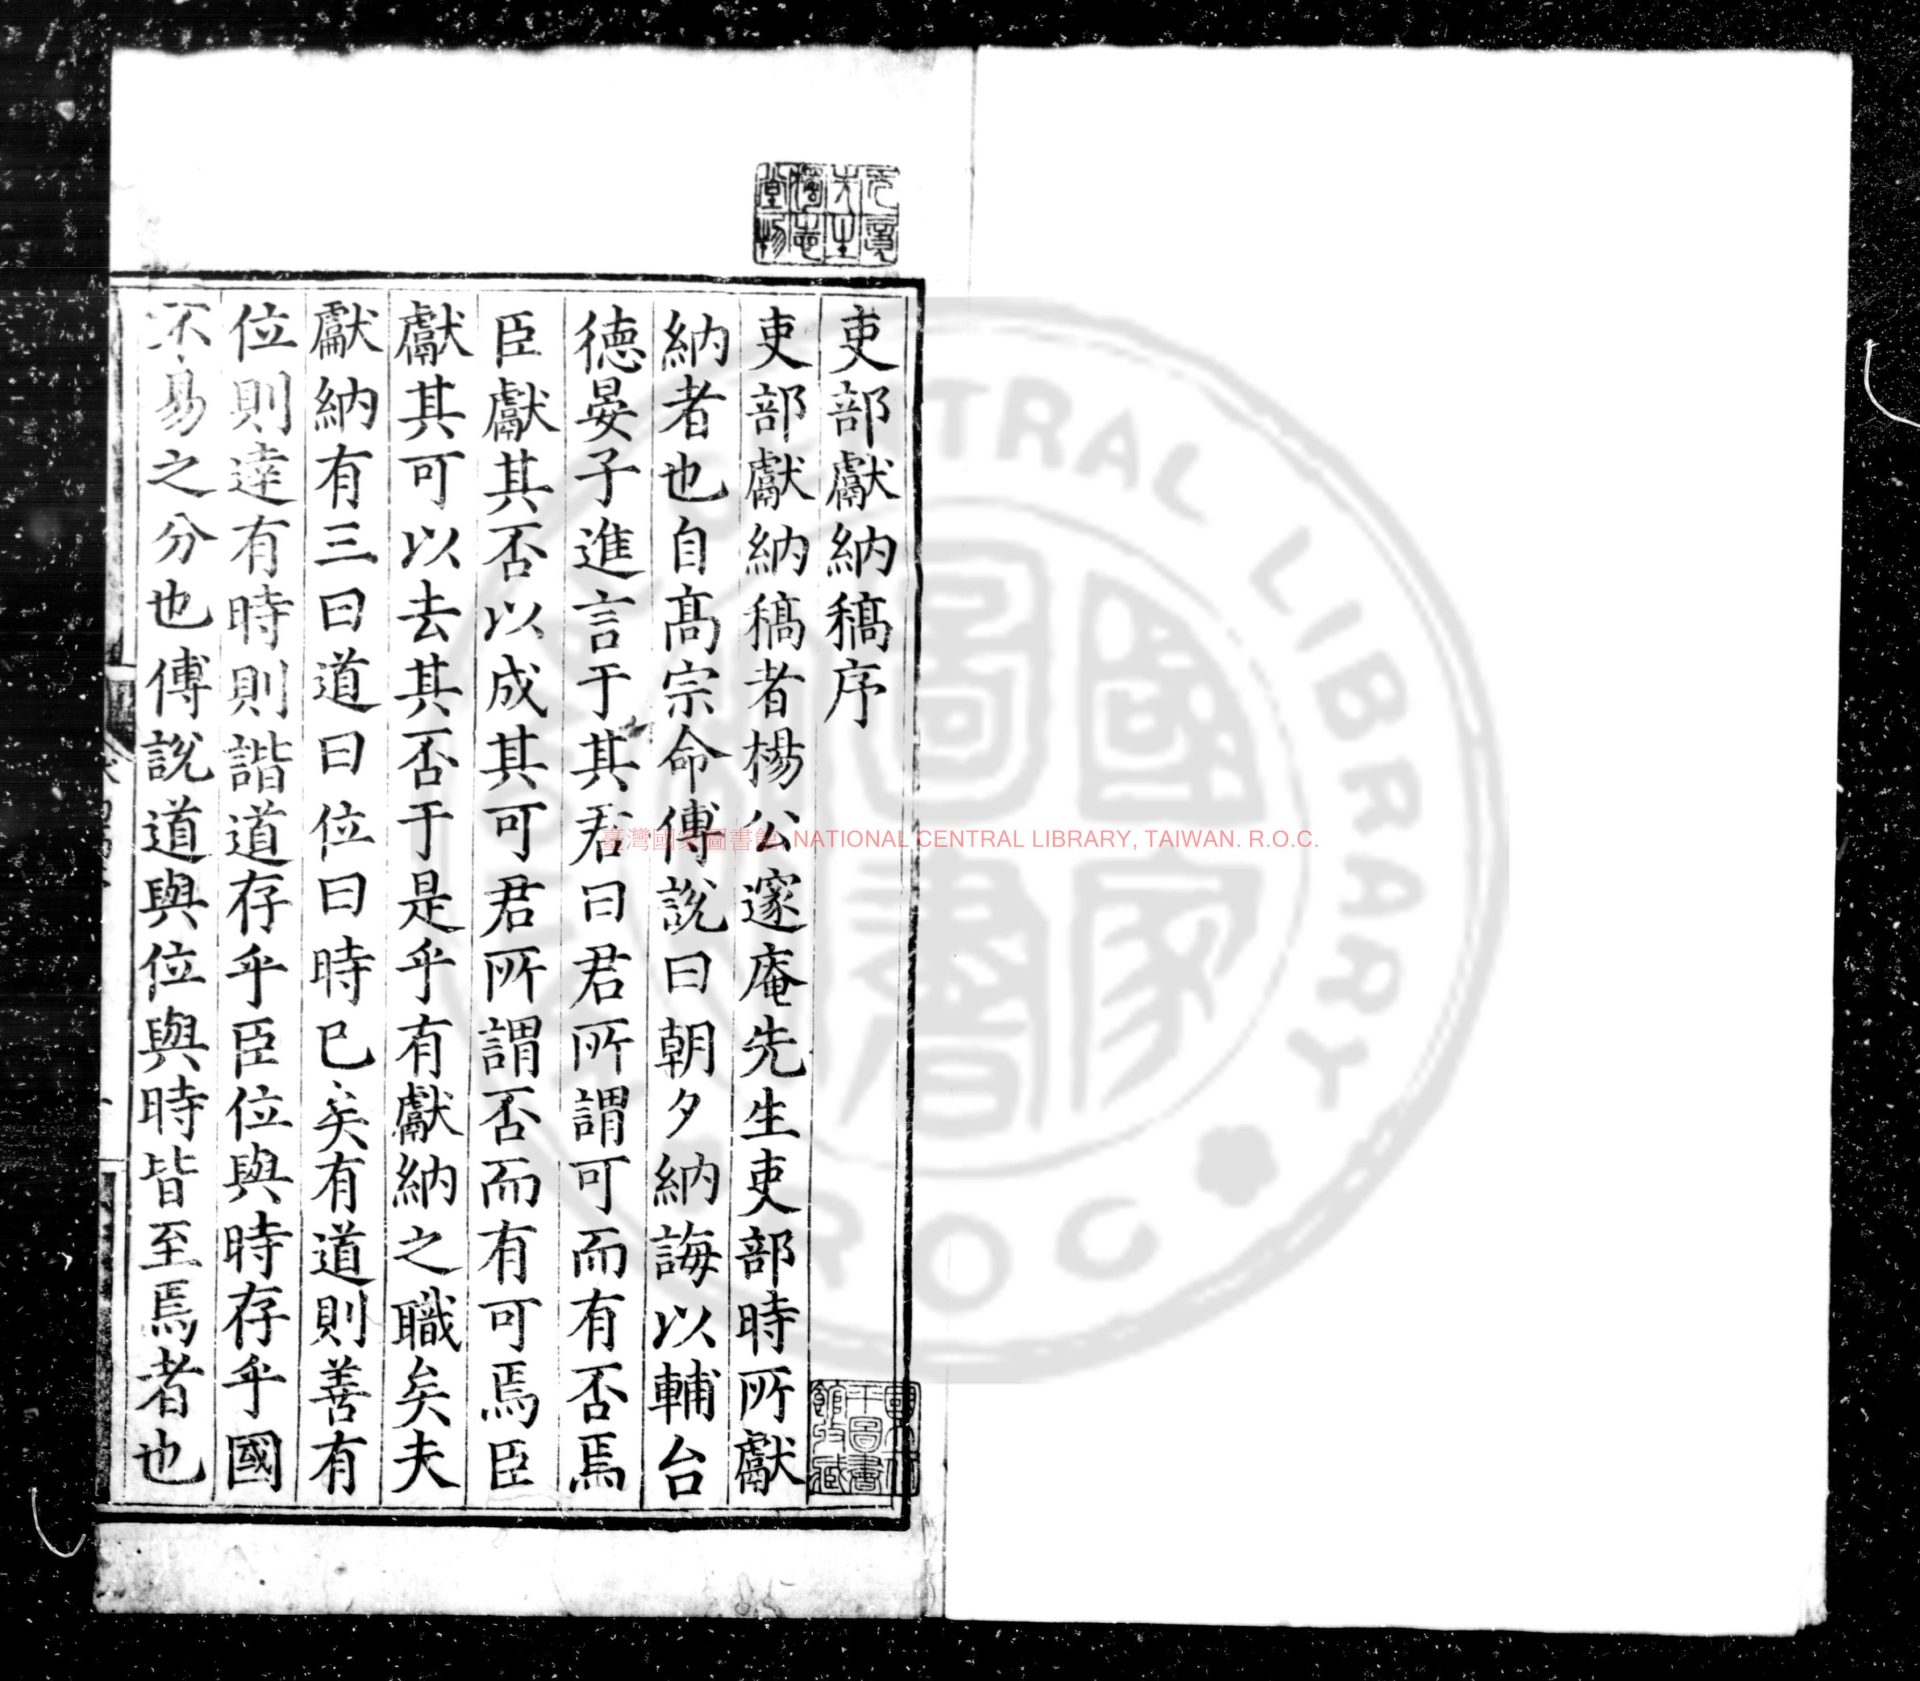 吏部獻納稿序
吏部獻納稿者楊公邃庵先生吏部時所獻
納者也自髙宗命傅說曰朝夕納誨以輔台
德晏子進言于其君曰君所謂可而有否焉
臣獻其否以成其可君所謂否而有可焉臣
獻其可以去其否于是乎有獻納之職矣夫
獻納有三曰道曰位曰時已矣有道則善有
位則達有時則諧道存乎臣位與時存乎國
不易之分也傅說道與位與時皆至焉者也
臺灣國家圖書館, NATIONAL CENTRAL LIBRARY, TAIWAN. R.O.C.